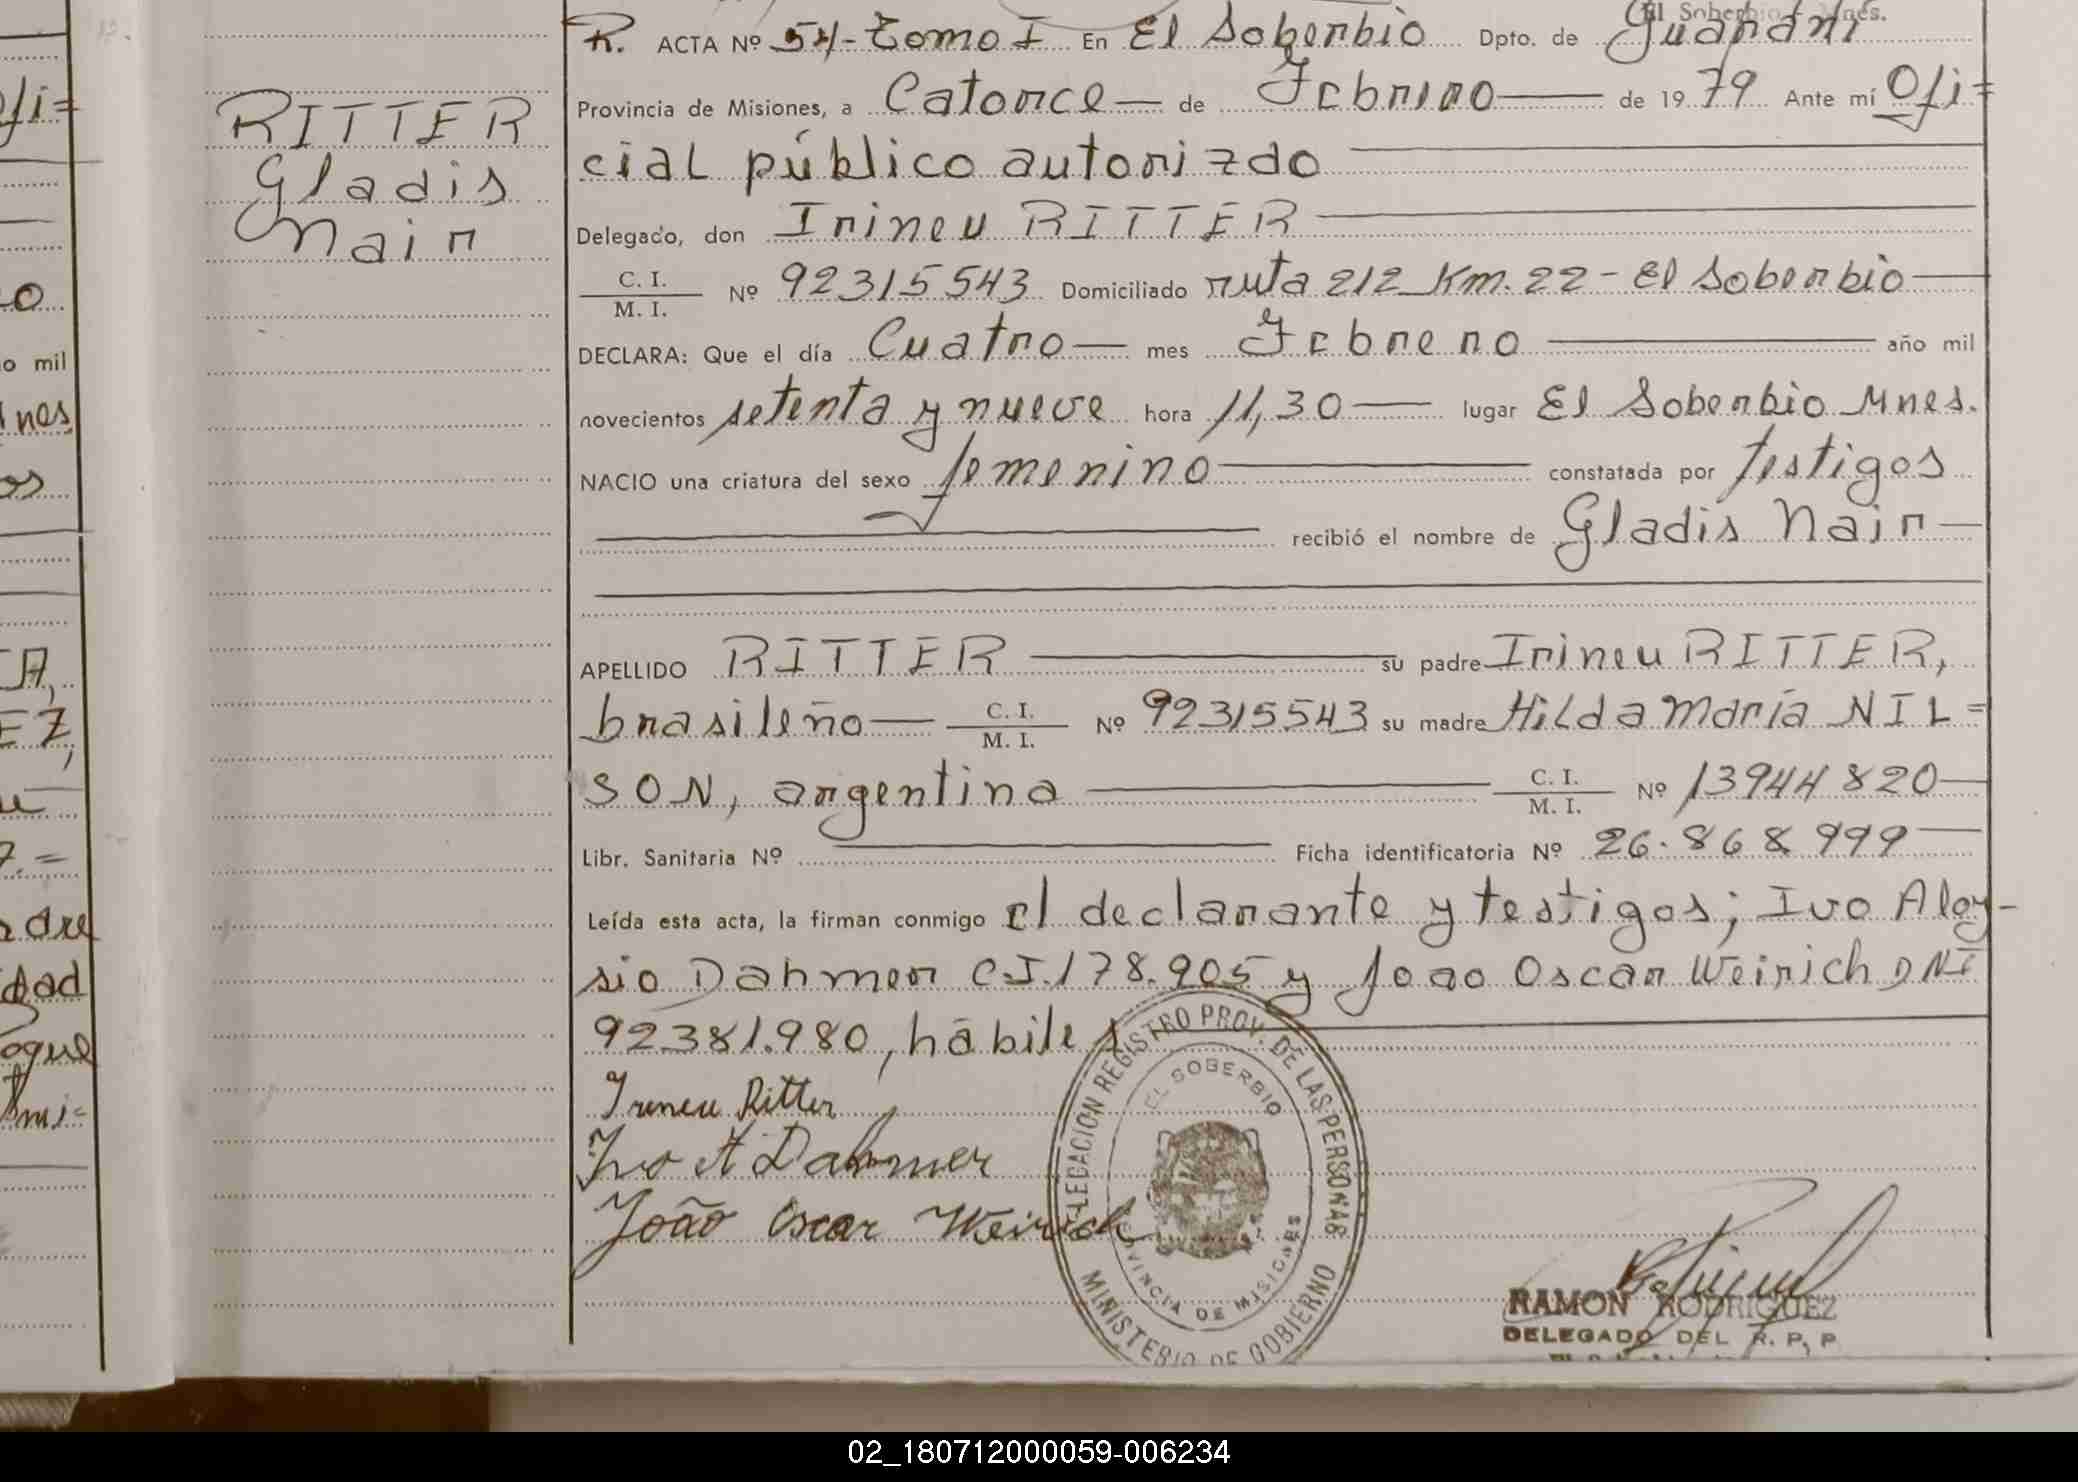 RITTER
Gladis
Nair
R. ACTA Nº 54-tomo I En El Soberbio Dpto. de Guaraní
Provincia de Misiones, a Catorce — de Febrero — de 1979 Ante mí Ofi=
cial público autorizdo
Delegado, don Irineu RITTER
C. I. / M. I. Nº 92315543 Domiciliado ruta 212 Km. 22 - El Soberbio
DECLARA: Que el día Cuatro — mes Febrero — año mil
novecientos setenta y nueve hora 11,30 — lugar El Soberbio Mnes.
NACIO una criatura del sexo femenino — constatada por testigos
recibió el nombre de Gladis Nair
APELLIDO RITTER — su padre Irineu RITTER,
brasileño — C. I. / M. I. Nº 92315543 su madre Hilda María NIL=
SON, argentina — C. I. / M. I. Nº 13944820
Libr. Sanitaria Nº — Ficha identificatoria Nº 26.868.999
Leída esta acta, la firman conmigo el declarante y testigos; Ivo Aloy-
sio Dahmer C.I.178.905 y Joao Oscar Weirich DNI
92381.980, hábiles
Ireneu Ritter
Ivo A Dahmer
João Oscar Weirich
DELEGACION REGISTRO PROV. DE LAS PERSONAS
EL SOBERBIO
PROVINCIA DE MISIONES
MINISTERIO DE GOBIERNO
RAMON RODRIGUEZ
DELEGADO DEL R. P. P
02_180712000059-006234